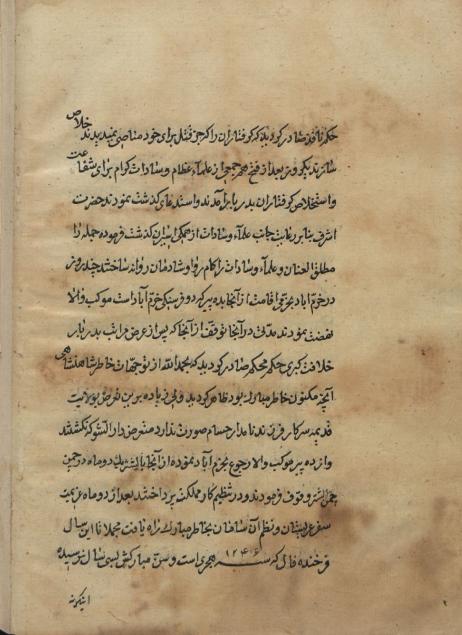 حکم نافذ صادر گردید که گرفتاران را که جز قتل برای خود مناصی نمیدیدند خلاص
سازند یکروز بعد از فتح جمعی از علماء عظام و سادات کرام برای شفاعت
و استخلاص گرفتاران بدربار آمدند و استدعای گذشت نمودند حضرت
اشرف بنابر رعایت جانب علماء و سادات از همگی اسیران گذشت فرموده جمله را
مطلق العنان و علماء و سادات را کام روا و شادمان روانه ساختند چند روز
در خرم آباد اقامت از آنجا بده پیر که دو فرسنگی خرم آباد است موکب والا
نهضت نمودند مدتی در آنجا توقف از آنجا که پس از عرض مراتب بدربار
خلافت کبری حکم محکم صادر گردید که بحمدالله از توجهات خاطر شاهنشاهی
آنچه مکنون خاطر مبارک بود ظاهر گردید و زیاده برین تعرض بولایت
قدیمه سرکار فرزند نامدار حسام صورت ندارد متعرض دار الشوکه نگشتند
و از ده پیر موکب والا رجوع بخرم آباد نموده از آنجا بالشتر یک دو ماه در چمن
الشتر وقوف فرمودند و در تنظیم کار مملکت پرداختند بعد از دو ماه عزیمت
سفر عربستان و نظم آن سامان بخاطر مبارک راه یافت مجملا تا این سال
فرخنده فال که سنه ۱۲۴۶ هجری است و سن مبارکش بسی سال نرسیده
اینگونه